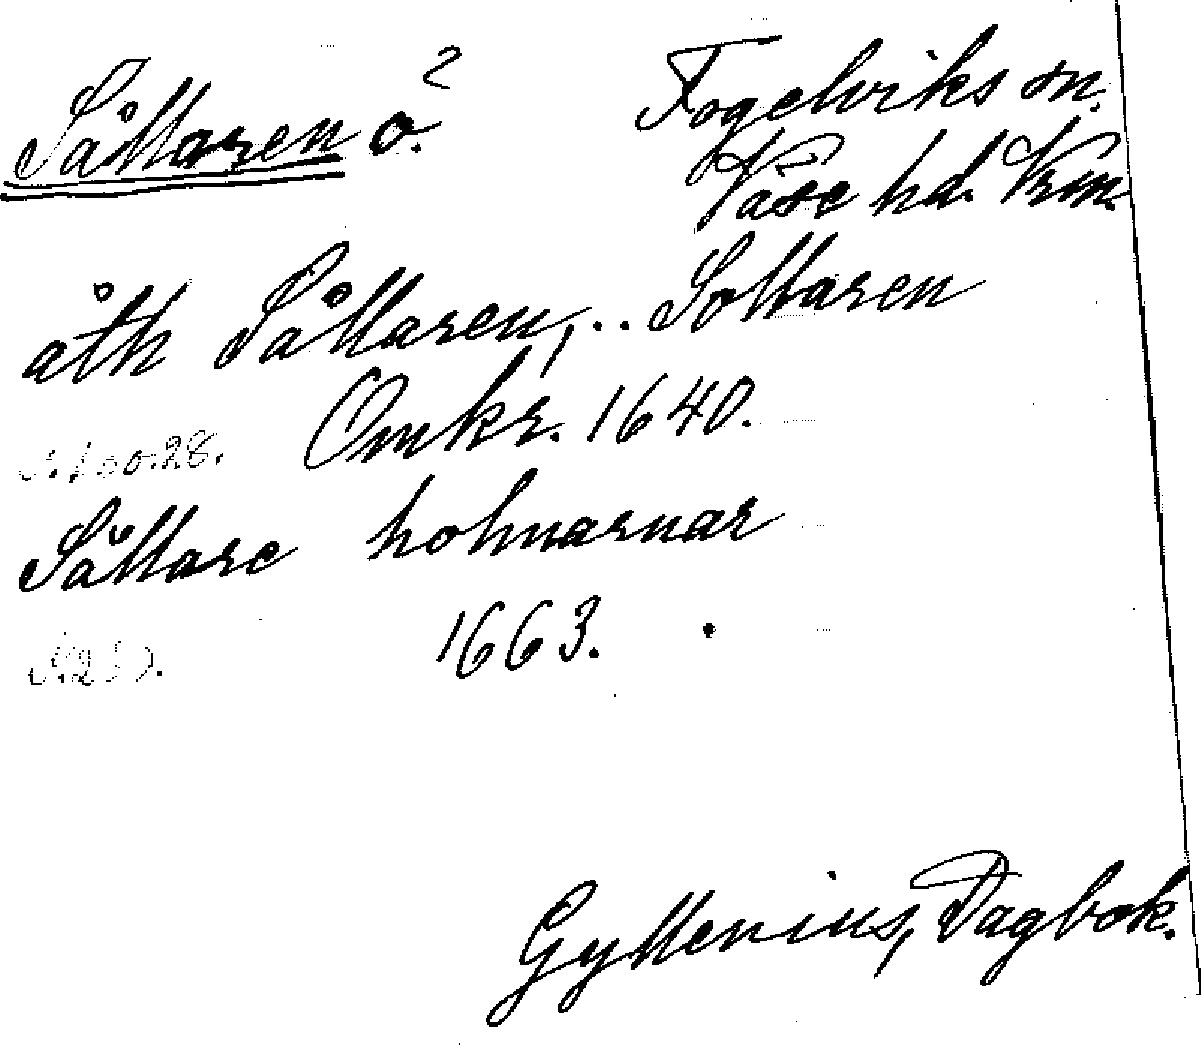 Såltaren ö. ?
Fogelviks sn.
Väse hd. Vrm.
åth Såltaren, .. Soltaren
Omkr. 1640.
Såltare holmarnar
1663.
Gyllenius, Dagbok.